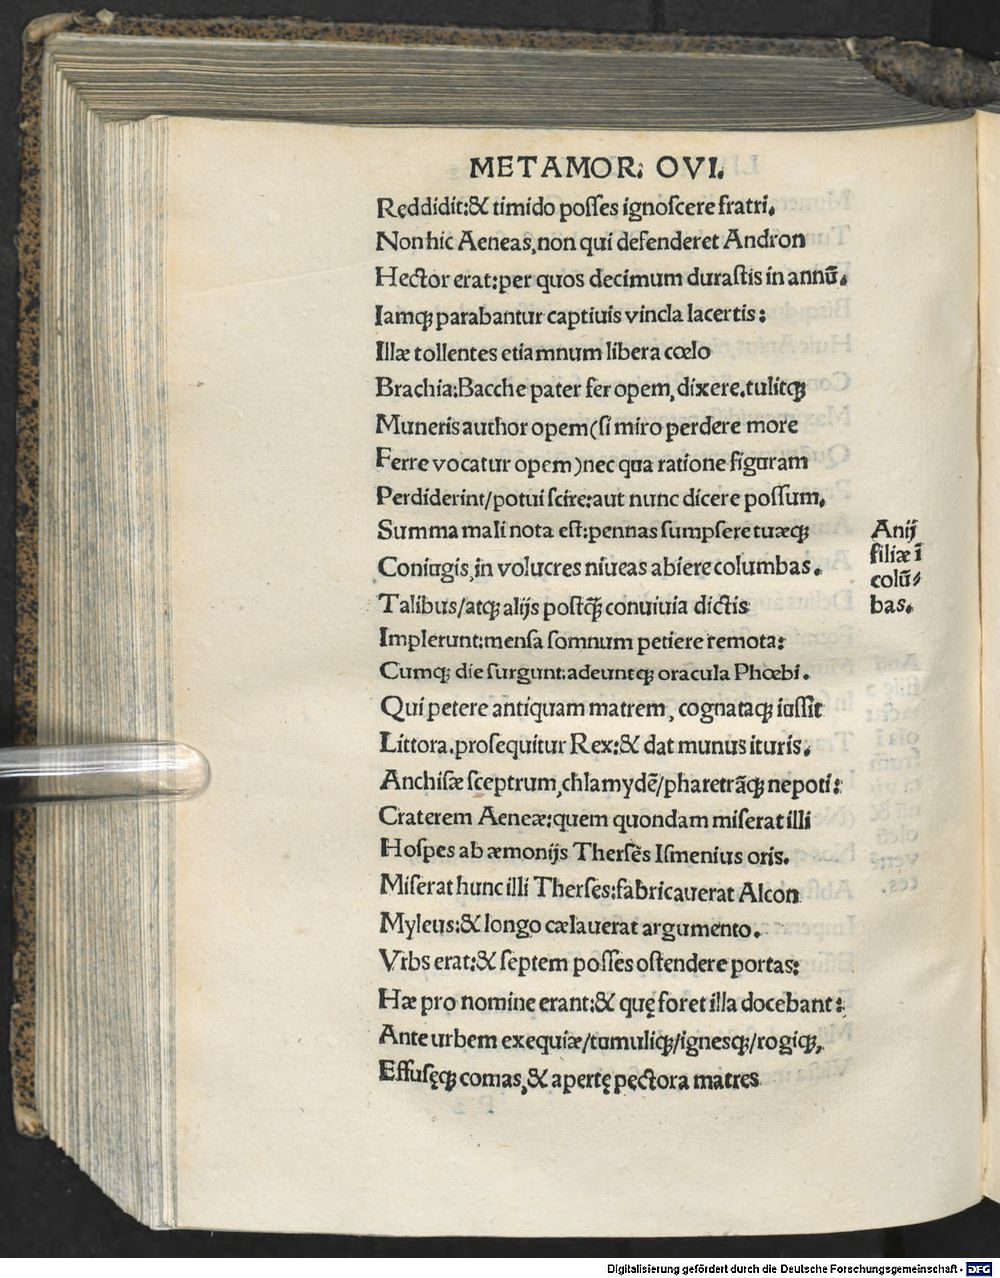 METAMOR. OVI.
Reddidit:& timido posses ignoscere fratri.
Non hic Aeneas, non qui defenderet Andron
Hector erat: per quos decimum durastis in annū.
Iamqꝫ parabantur captiuis vincla lacertis:
Illæ tollentes etiamnum libera cœlo
Brachia: Bacche pater fer opem, dixere. tulitqꝫ
Muneris author opem (si miro perdere more
Ferre vocatur opem) nec qua ratione figuram
Perdiderint/potui scire: aut nunc dicere possum.
Summa mali nota est: pennas sumpsere tuæqꝫ
Coniugis, in volucres niueas abiere columbas.
Talibus/atqꝫ alijs postꝗ̃ conuiuia dictis
Implerunt: mensa somnum petiere remota:
Cumqꝫ die surgunt: adeuntqꝫ oracula Phœbi.
Qui petere antiquam matrem, cognataqꝫ iussit
Littora. prosequitur Rex:& dat munus ituris.
Anchisæ sceptrum, chlamydē/pharetrāqꝫ nepoti:
Craterem Aeneæ: quem quondam miserat illi
Hospes ab æmonijs Therses Ismenius oris.
Miserat hunc illi Therses: fabricauerat Alcon
Myleus:& longo cælauerat argumento.
Vrbs erat:& septem posses ostendere portas:
Hæ pro nomine erant:& quę foret illa docebant:
Ante urbem exequiæ/tumuliqꝫ/ignesqꝫ/rogiqꝫ,
Effusęqꝫ comas, & apertę pectora matres
Anij
filiæ ī
colū⸗
bas.
Digitalisierung gefördert durch die Deutsche Forschungsgemeinschaft - DFG